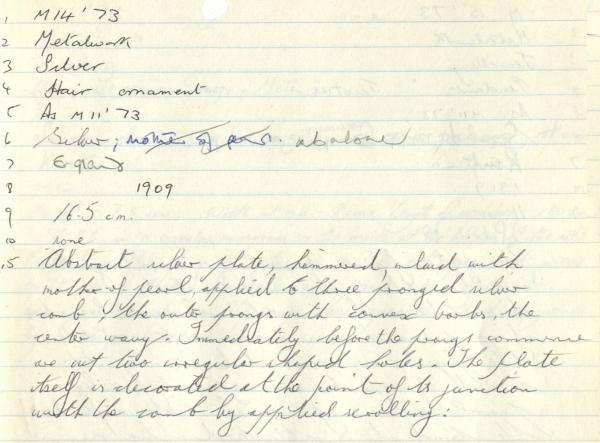 1 M14'73
2 Metalwork
3 Silver
4 Hair ornament
5 As M11'73
6 Silver; mother of pearl. abalone
7 England
8 1909
9 16.5 cm.
10 none
15 Abstract silver plate, hammered, inlaid with
mother of pearl applied to three pronged silver
comb; the outer prongs with convex barbs, the
center wavy. Immediately before the prongs commence
are cut two irregular shaped holes. The plate
itself is decorated at the point of its junction
with the comb by applied scrolling: